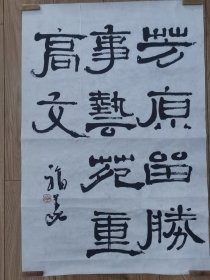 芳原留勝
事藝苑重
高文
福